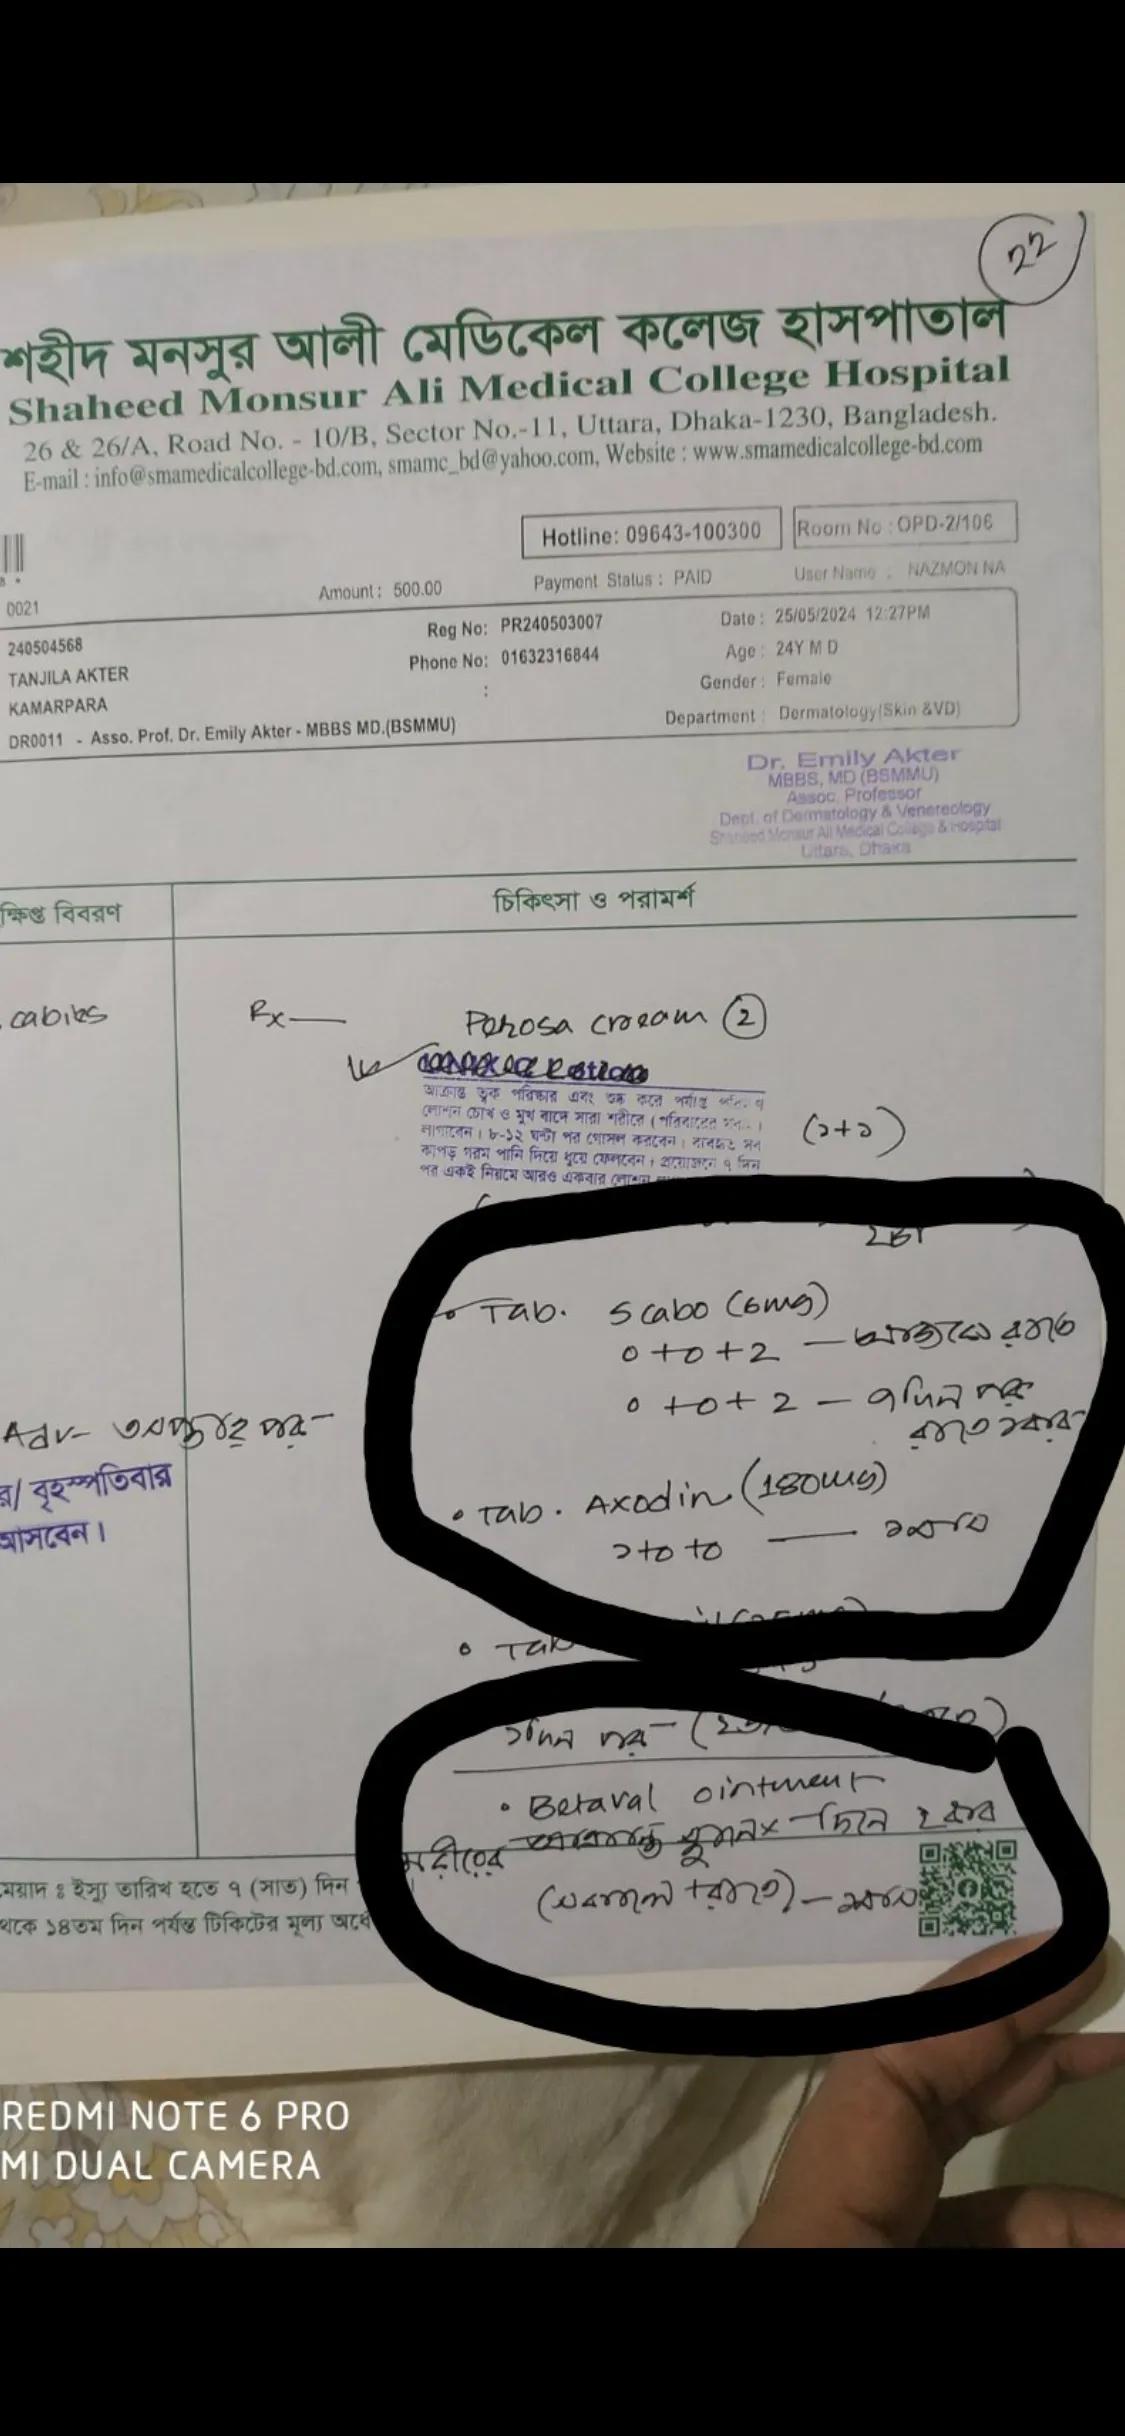 22
শহীদ মনসুর আলী মেডিকেল কলেজ হাসপাতাল
Shaheed Monsur Ali Medical College Hospital
26 & 26/A, Road No. - 10/B, Sector No.-11, Uttara, Dhaka-1230, Bangladesh.
E-mail : info@smamedicalcollege-bd.com, smamc_bd@yahoo.com, Website : www.smamedicalcollege-bd.com
Hotline: 09643-100300 Room No : OPD-2/106
0021 Amount : 500.00 Payment Status : PAID User Name : NAZMON NA
240504568 Reg No: PR240503007 Date : 25/05/2024 12:27PM
TANJILA AKTER Phone No: 01632316844 Age : 24Y M D
KAMARPARA : Gender : Female
DR0011 - Asso. Prof. Dr. Emily Akter - MBBS MD.(BSMMU) Department : Dermatology(Skin &VD)
Dr. Emily Akter
MBBS, MD (BSMMU)
Assoc. Professor
Dept. of Dermatology & Venereology
Shaheed Monsur Ali Medical College & Hospital
Uttara, Dhaka
ক্ষিপ্ত বিবরণ চিকিৎসা ও পরামর্শ
cabies Rx Perosa cream 2
আক্রান্ত ত্বক পরিষ্কার এবং শুষ্ক করে পর্যাপ্ত
লোশন চোখ ও মুখ বাদে সারা শরীরে (পরিবারের
লাগাবেন। ৮-১২ ঘন্টা পর গোসল করবেন। ব্যবহৃত সব (১+১)
কাপড় গরম পানি দিয়ে ধুয়ে ফেলবেন। প্রয়োজনে ৭ দিন
পর একই নিয়মে আরও একবার লোশন
Tab. Scabo (6mg)
0+0+2 — রাতে
0+0+2 — ৭দিন পর
রাতে ১বার
Adv- পর-
র/ বৃহস্পতিবার
আসবেন।
Tab. Axodin (180mg)
১+০+০ — ১মাস
Tab
পর-
Betaval ointment
শরীরের দিনে ২বার
(সকালে+রাতে) — ১মাস
মেয়াদ ঃ ইস্যু তারিখ হতে ৭ (সাত) দিন
থকে ১৪তম দিন পর্যন্ত টিকিটের মূল্য অর্ধে
REDMI NOTE 6 PRO
MI DUAL CAMERA